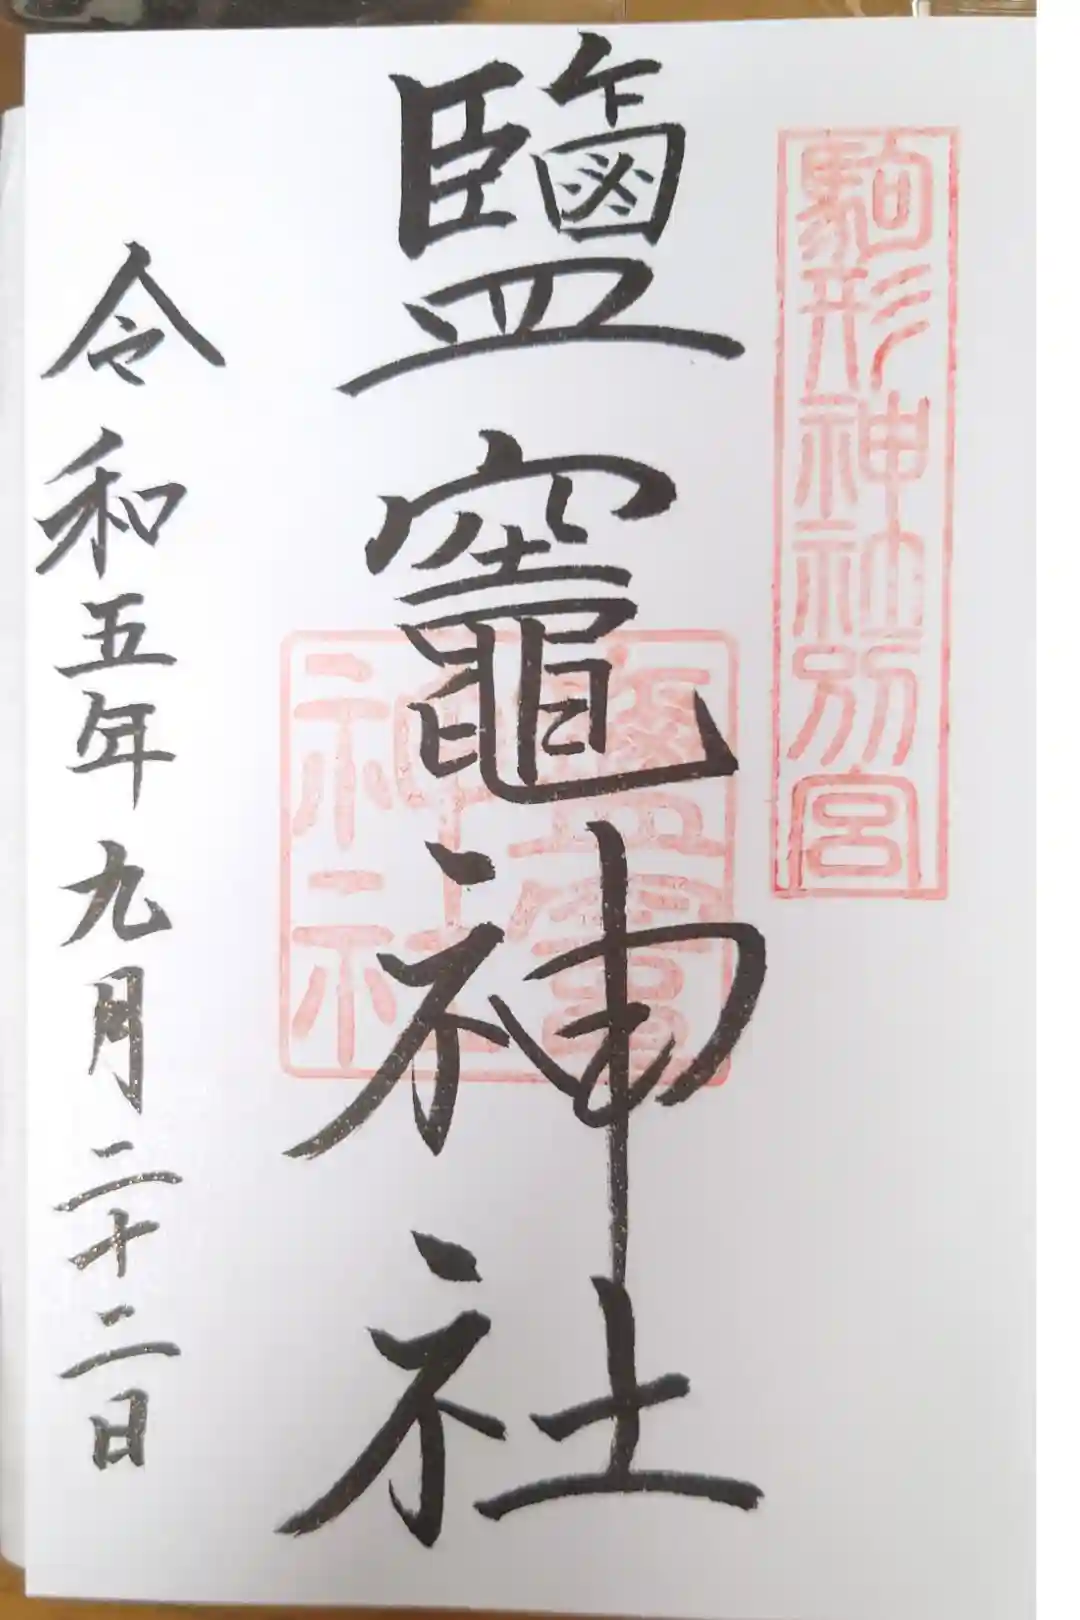 駒形神社別宮
鹽竈神社
鹽竈
神社
令和五年九月二十二日